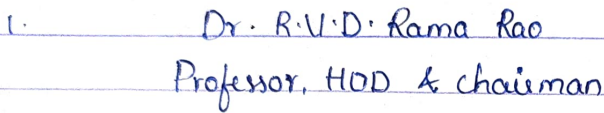 1. Dr. R.V.D. Rama Rao
Professor, HOD & chairman